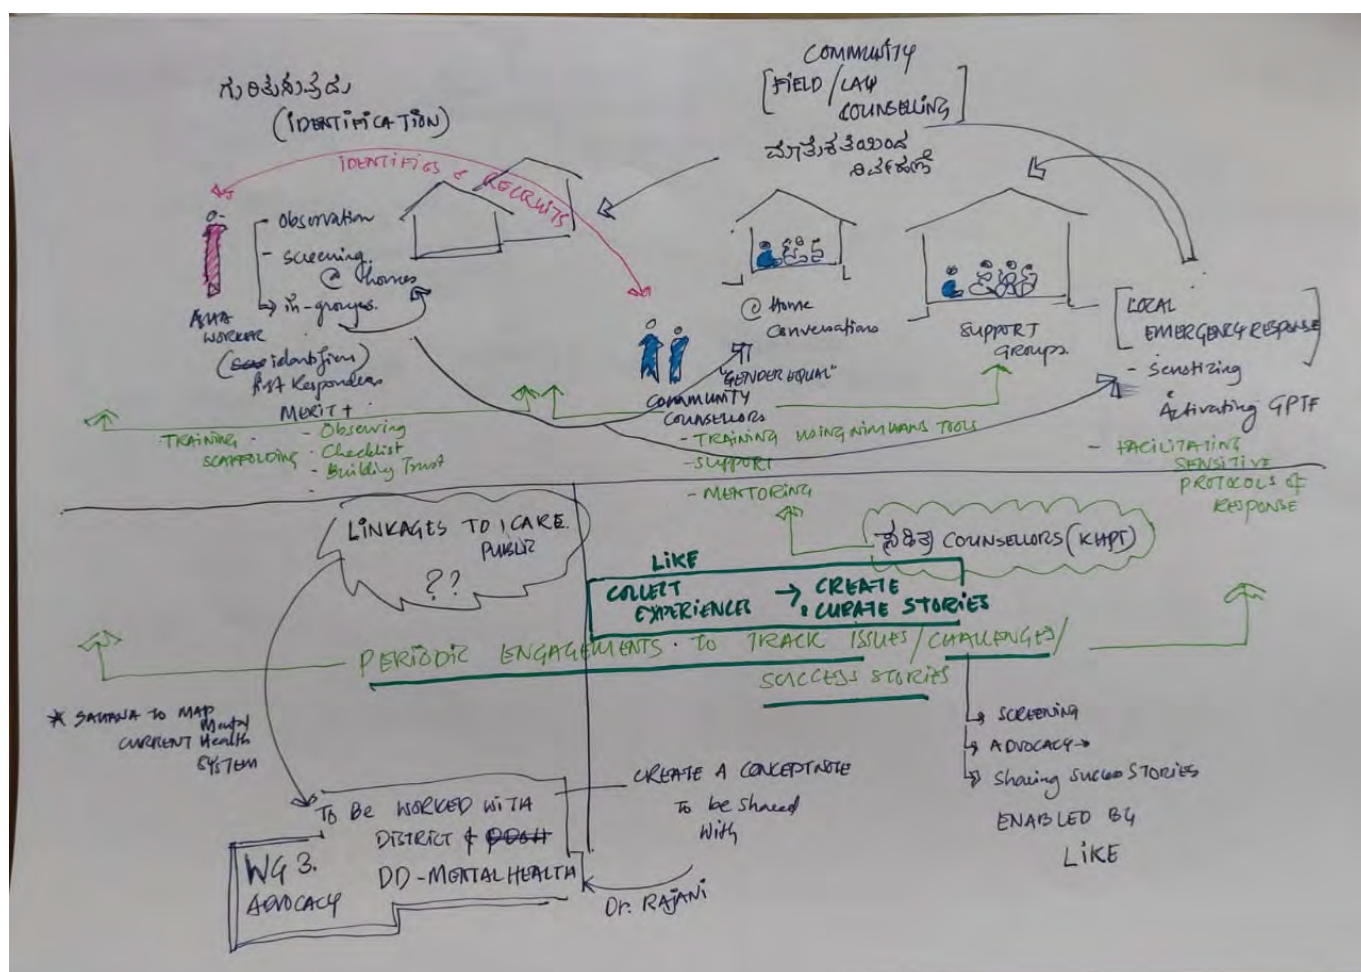 ಗುರುತಿಸುವುದು
(IDENTIFICATION)
IDENTIFIES & RECRUITS
- Observation
- Screening
@ homes
→ in-groups.
ASHA
WORKER
First Responders
MERIT +
- Observing
- Checklist
- Building Trust
TRAINING
SCAFFOLDING
COMMUNITY
[FIELD / LAY
COUNSELLING]
@ Home
Conversations
"GENDER EQUAL"
COMMUNITY
COUNSELLORS
- TRAINING USING NIMHANS TOOLS
- SUPPORT
- MENTORING
SUPPORT
Groups
[LOCAL
EMERGENCY RESPONSE]
- Sensitizing
Activating GPTF
- FACILITATING
SENSITIVE
PROTOCOLS of
RESPONSE
LINKAGES TO CARE.
PUBLIC
??
COUNSELLORS (KHPT)
LIKE
COLLECT
EXPERIENCES → CREATE
& CURATE STORIES
PERIODIC ENGAGEMENTS TO TRACK ISSUES / CHALLENGES /
SUCCESS STORIES
→ SCREENING
→ ADVOCACY →
→ Sharing SUCCESS STORIES
ENABLED BY
LIKE
* SAHANA TO MAP
CURRENT Mental
Health
SYSTEM
TO BE WORKED WITH
DISTRICT &
DD - MENTAL HEALTH
WG 3.
ADVOCACY
CREATE A CONCEPT NOTE
To be shared
With
Dr. RAJANI